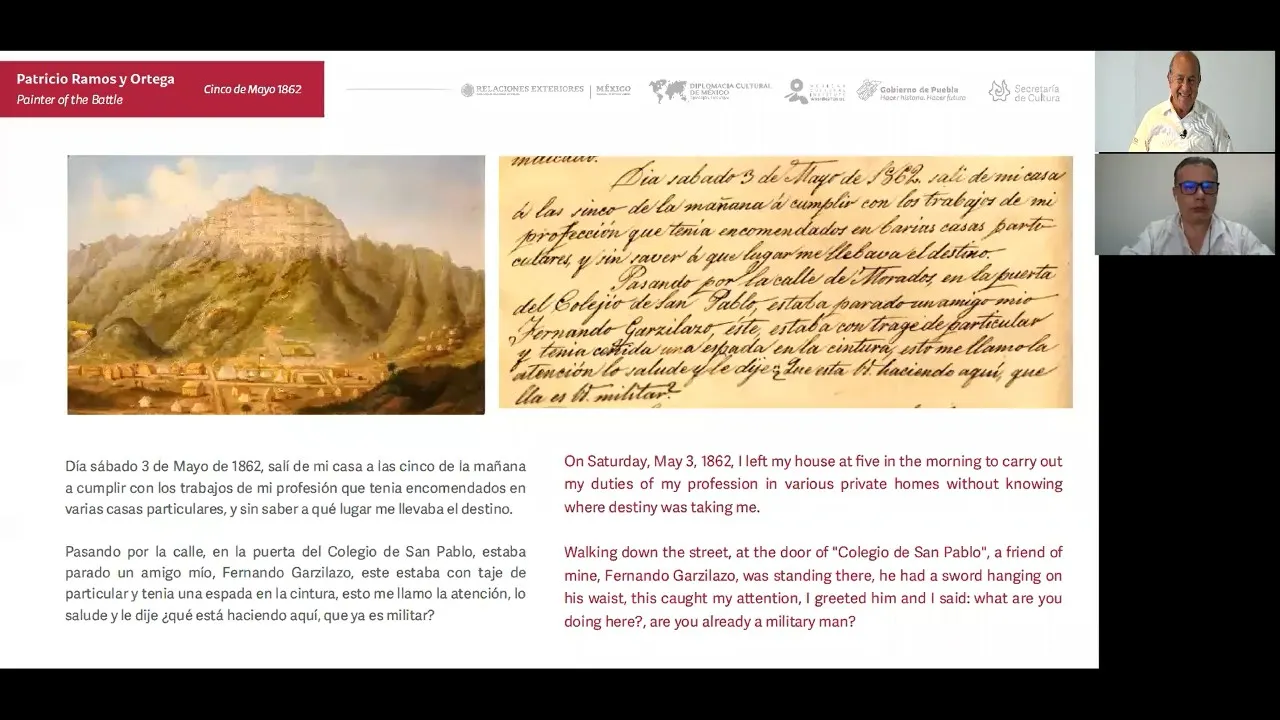 Patricio Ramos y Ortega
Painter of the Battle
Cinco de Mayo 1862
RELACIONES EXTERIORES
MÉXICO
DIPLOMACIA CULTURAL
DE MÉXICO
Gobierno de Puebla
Hacer historia. Hacer futuro.
Secretaría
de Cultura
Dia sabado 3 de Mayo de 1862. sali de mi casa
á las sinco de la mañana á cumplir con los trabajos de mi
profección que tenia encomendados en barias casas parti-
culares, y sin saver á que lugar me llebava el destino.
Pasando por la calle de Morados, en la puerta
del Colejio de San Pablo, estaba parado un amigo mio
Fernando Garzilazo, éste, estaba con trage de particular
y tenia ceñida una espada en la cintura, esto me llamo la
atención lo salude y le dije ¿Que esta V. haciendo aquí, que
lla es V. militar?
Día sábado 3 de Mayo de 1862, salí de mi casa a las cinco de la mañana
a cumplir con los trabajos de mi profesión que tenia encomendados en
varias casas particulares, y sin saber a qué lugar me llevaba el destino.
Pasando por la calle, en la puerta del Colegio de San Pablo, estaba
parado un amigo mío, Fernando Garzilazo, este estaba con taje de
particular y tenia una espada en la cintura, esto me llamo la atención, lo
salude y le dije ¿qué está haciendo aquí, que ya es militar?
On Saturday, May 3, 1862, I left my house at five in the morning to carry out
my duties of my profession in various private homes without knowing
where destiny was taking me.
Walking down the street, at the door of "Colegio de San Pablo", a friend of
mine, Fernando Garzilazo, was standing there, he had a sword hanging on
his waist, this caught my attention, I greeted him and I said: what are you
doing here?, are you already a military man?